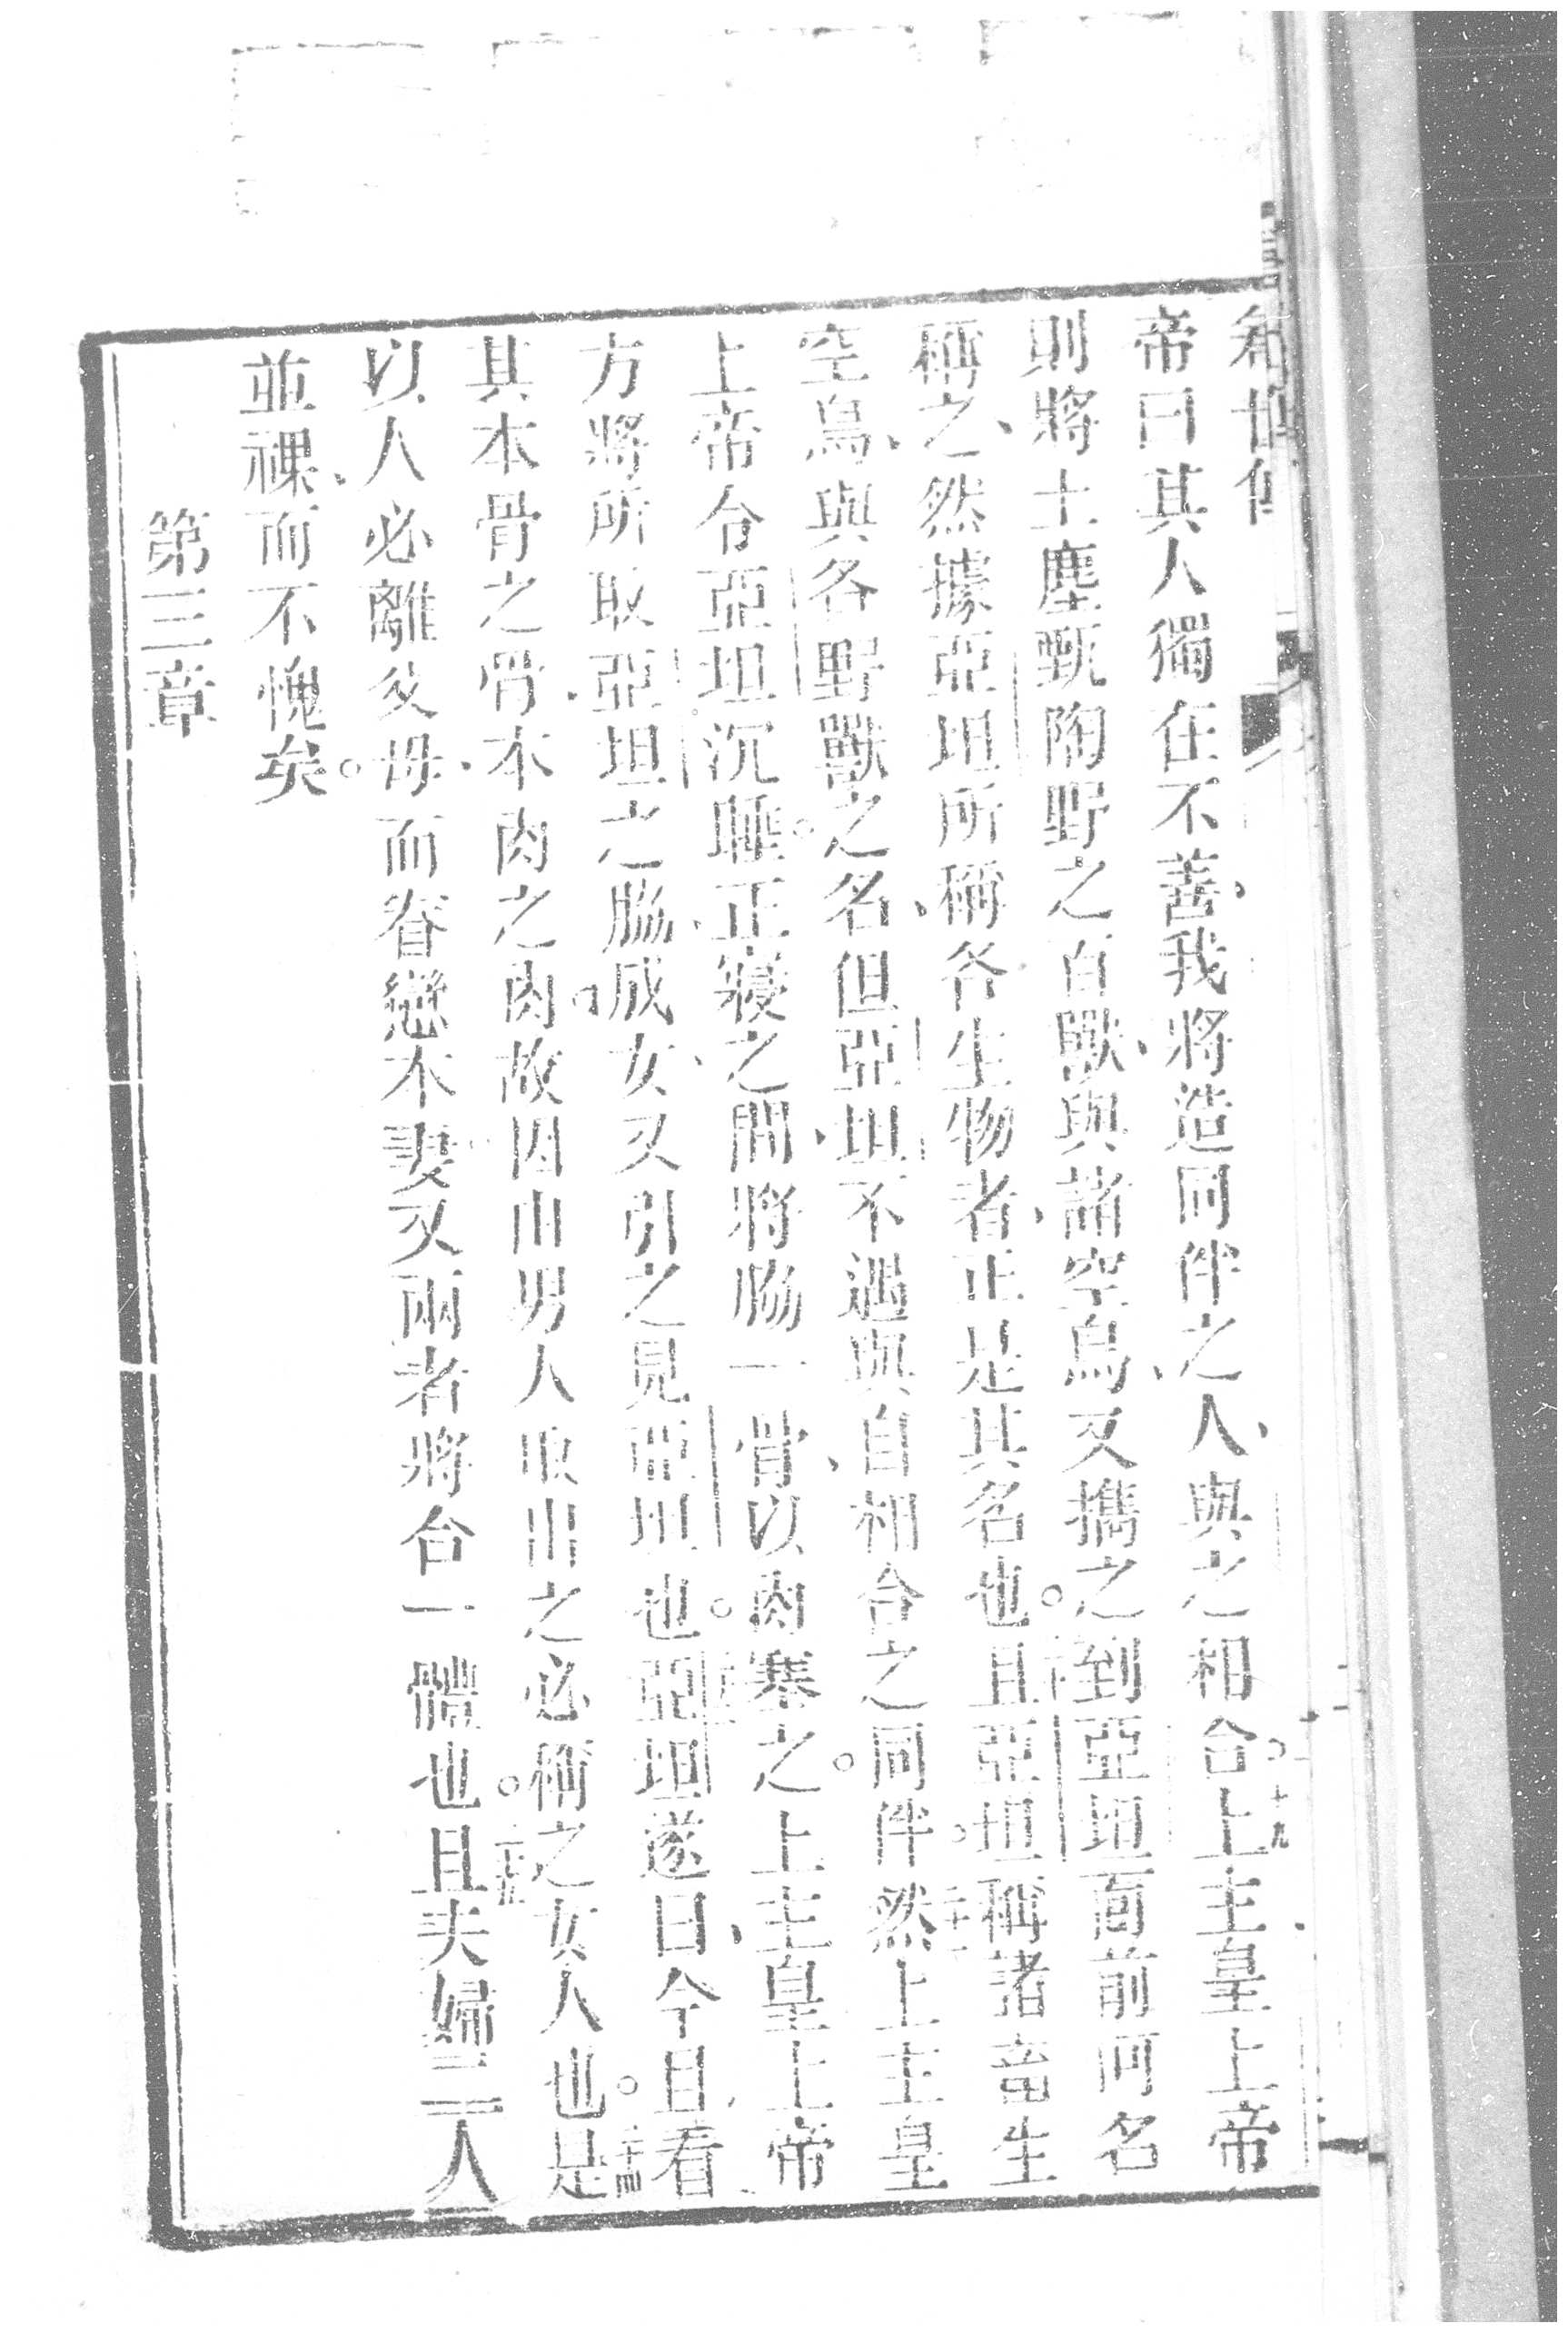 創世傳
帝曰其人獨在不善、我將造同伴之人、與之相合。十九上主皇上帝
則將土塵甄陶野之百獸、與諸空鳥、又攜之到亞坦面前何名
稱之、然據亞坦所稱各生物者、正是其名也。二十且亞坦稱諸畜生
空鳥、與各野獸之名、但亞坦不遇與自相合之同伴。二十一然上主皇
上帝令亞坦沉睡正寢之間、將肋一骨、以肉塞之。上主皇上帝
方將所取亞坦之脇、成女、又引之見亞坦也。亞坦遂曰、今日看
其本骨之骨、本肉之肉。故因由男人取出之必稱之女人也。二十四是
以人必離父母、而眷戀本妻、又兩者將合一體也。二十五且夫婦二人
並裸、而不愧矣。
第三章